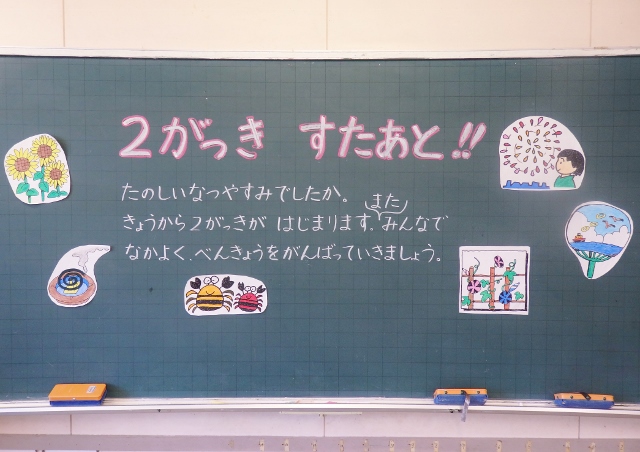 2がっき すたあと!!
たのしいなつやすみでしたか。
きょうから2がっきが はじまります。また みんなで
なかよく、べんきょうをがんばっていきましょう。